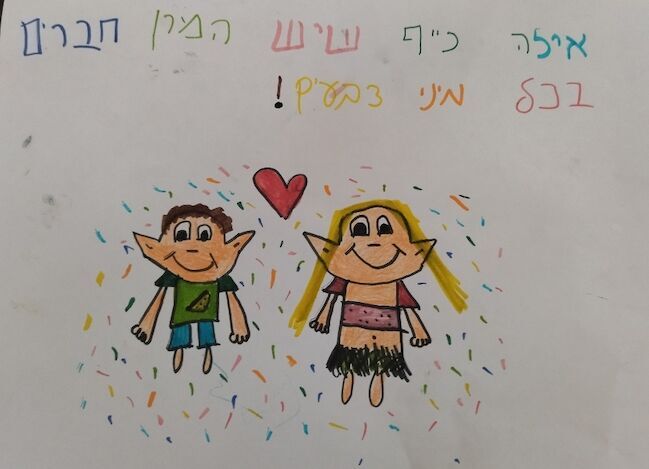 איזה כייף שיש המון חברים
בכל מיני צבעים!